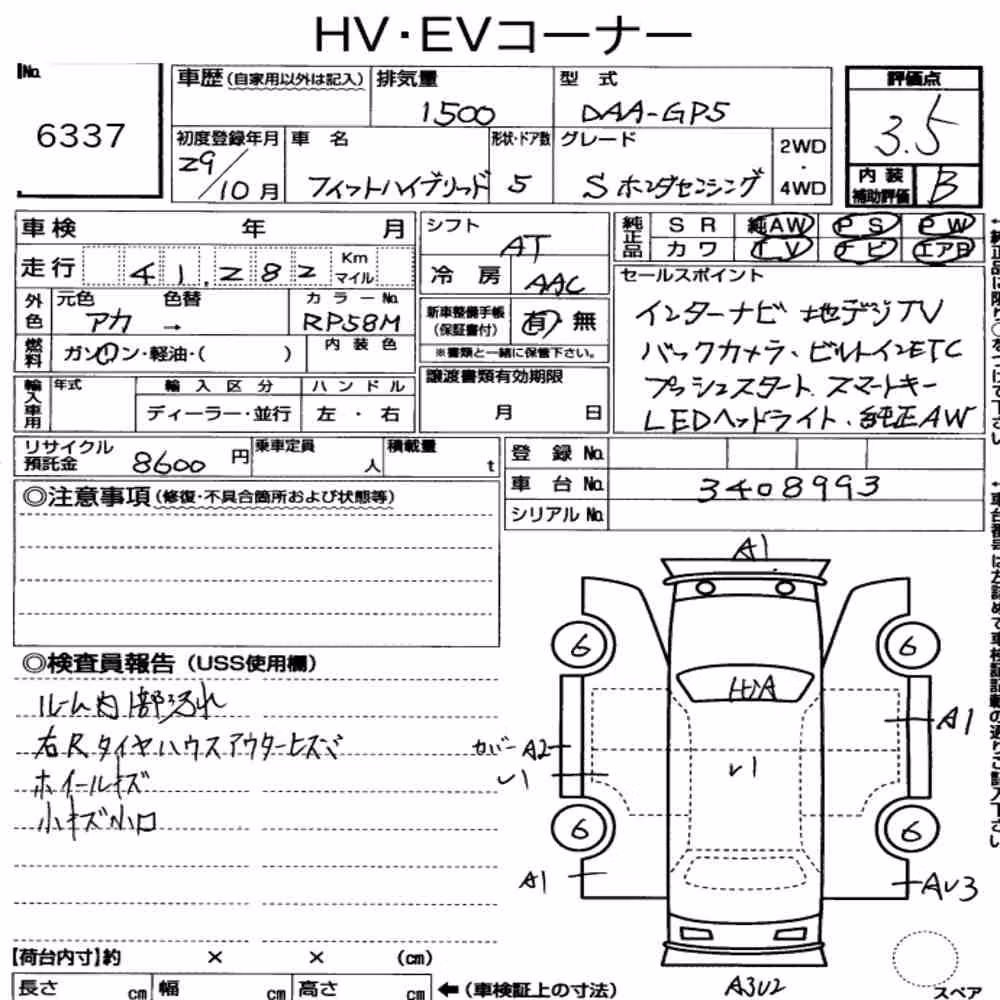 HV・EVコーナー
No.
6337
車歴(自家用以外は記入)
排気量
1500
型 式
DAA-GP5
評価点
3.5
初度登録年月
29/10月
車 名
フィットハイブリッド
形状・ドア数
5
グレード
S ホンダセンシング
2WD
・
4WD
内 装
補助評価
B
車検 年 月
走行
41,282
Km
マイル
外色
元色
アカ
色替
→
カラーNo.
RP58M
燃料
ガソリン・軽油・( )
内 装 色
輸入車用
年式
輸 入 区 分
ディーラー・並行
ハ ン ド ル
左 ・ 右
シフト
AT
冷 房
AAC
新車整備手帳
(保証書付)
有 無
※書類と一緒に保管下さい。
譲渡書類有効期限
月 日
純正品
S R 純AW P S P W
カ ワ T V ナ ビ エアB
セールスポイント
インターナビ 地デジTV
バックカメラ、ビルトインETC
プッシュスタート、スマートキー
LEDヘッドライト、純正AW
リサイクル
預託金
8600 円
乗車定員
人
積載量
t
登 録 No.
車 台 No.
3408993
シリアル No.
◎注意事項(修復・不具合箇所および状態等)
◎検査員報告(USS使用欄)
ルーム内1部汚れ
右Rタイヤハウスアウターヒズミ
ホイールキズ
小キズ小凹
A1
6
6
A1
カバー A2
υ1
υ1
6
6
A1
Aυ3
A3υ2
スペア
【荷台内寸】約 × × (cm)
長さ cm
幅 cm
高さ cm
←(車検証上の寸法)